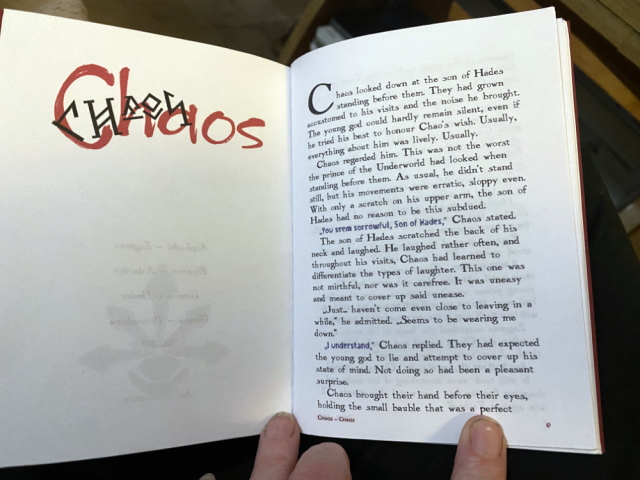 Chaos
CHAOS
Chaos looked down at the son of Hades
standing before them. They had grown
accustomed to his visits and the noise he brought.
The young god could hardly remain silent, even if
he tried his best to honour Chao's wish. Usually,
everything about him was lively. Usually.
Chaos regarded him. This was not the worst
the prince of the Underworld had looked when
standing before them. As usual, he didn't stand
still, but his movements were erratic, sloppy even.
With only a scratch on his upper arm, the son of
Hades had no reason to be this subdued.
„You seem sorrowful, Son of Hades,” Chaos stated.
The son of Hades scratched the back of his
neck and laughed. He laughed rather often, and
throughout his visits, Chaos had learned to
differentiate the types of laughter. This one was
not mirthful, nor was it carefree. It was uneasy
and meant to cover up said unease.
„Just… haven't come even close to leaving in a
while,” he admitted. „Seems to be wearing me
down.”
„I understand,” Chaos replied. They had expected
the young god to lie and attempt to cover up his
state of mind. Not doing so had been a pleasant
surprise.
Chaos brought their hand before their eyes,
holding the small bauble that was a perfect
Chaos – Chaos